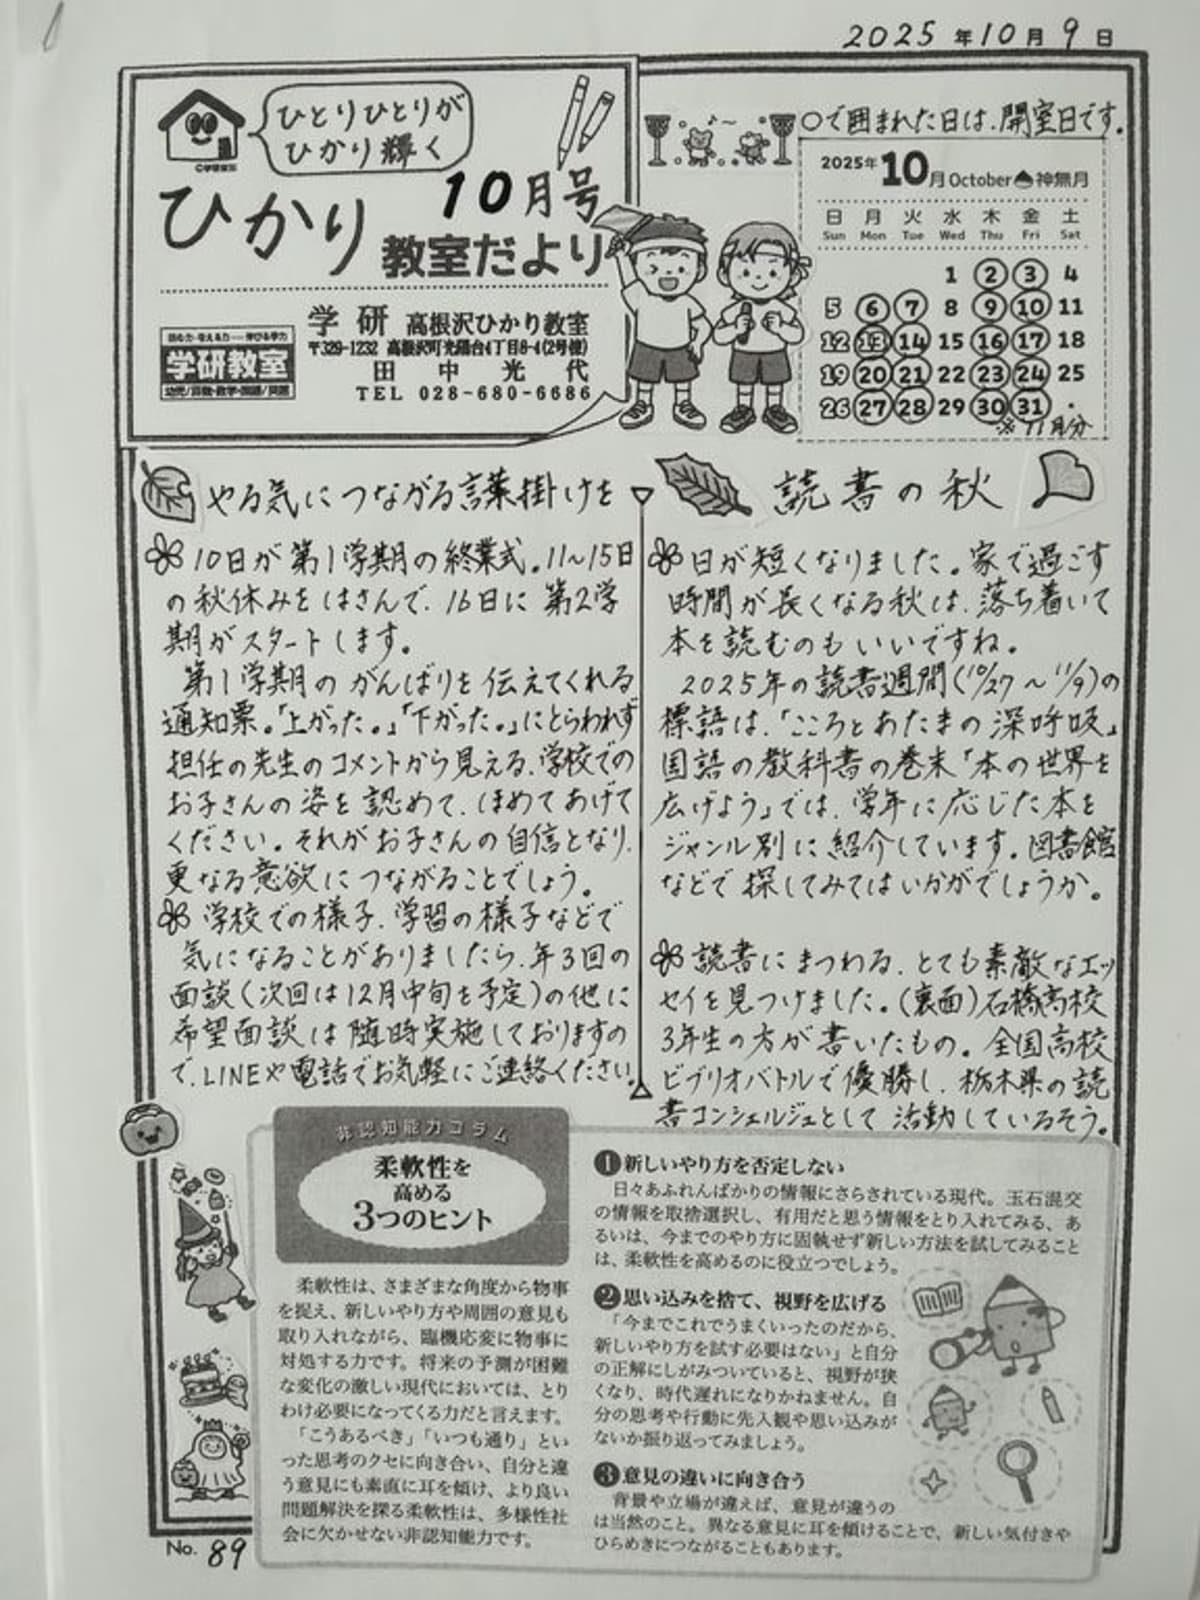 2025年10月9日
ひとりひとりが
ひかり輝く
10月号
ひかり
教室だより
学研 高根沢ひかり教室
〒329-1232 高根沢町光陽台4丁目8-4(2号棟)
田中光代
TEL 028-680-6686
学研教室
○で囲まれた日は、開室日です。
2025年10月October 神無月
日 月 火 水 木 金 土
Sun Mon Tue Wed Thu Fri Sat
1 2 3 4
5 6 7 8 9 10 11
12 13 14 15 16 17 18
19 20 21 22 23 24 25
26 27 28 29 30 31
※11月分
やる気につながる言葉掛けを
10日が第1学期の終業式。11〜15日
の秋休みをはさんで、16日に第2学
期がスタートします。
第1学期のがんばりを伝えてくれる
通知票。「上がった。」「下がった。」にとらわれず
担任の先生のコメントから見える、学校での
お子さんの姿を認めて、ほめてあげて
ください。それがお子さんの自信となり、
更なる意欲につながることでしょう。
学校での様子、学習の様子などで
気になることがありましたら、年3回の
面談(次回は12月中旬を予定)の他に
希望面談は随時実施しておりますの
で、LINEや電話でお気軽にご連絡ください。
読書の秋
日が短くなりました。家で過ごす
時間が長くなる秋は、落ち着いて
本を読むのもいいですね。
2025年の読書週間(10/27〜11/9)の
標語は、「こころとあたまの深呼吸」
国語の教科書の巻末「本の世界を
広げよう」では、学年に応じた本を
ジャンル別に紹介しています。図書館
などで探してみてはいかがでしょうか。
読書にまつわる、とても素敵なエッ
セイを見つけました。(裏面)石橋高校
3年生の方が書いたもの。全国高校
ビブリオバトルで優勝し、栃木県の読
書コンシェルジュとして活動しているそう。
非認知能力コラム
柔軟性を
高める
3つのヒント
柔軟性は、さまざまな角度から物事
を捉え、新しいやり方や周囲の意見も
取り入れながら、臨機応変に物事に
対処する力です。将来の予測が困難
な変化の激しい現代においては、とり
わけ必要になってくる力だと言えます。
「こうあるべき」「いつも通り」とい
った思考のクセに向き合い、自分と違
う意見にも素直に耳を傾け、より良い
問題解決を探る柔軟性は、多様性社
会に欠かせない非認知能力です。
❶新しいやり方を否定しない
日々あふれんばかりの情報にさらされている現代。玉石混交
の情報を取捨選択し、有用だと思う情報をとり入れてみる、あ
るいは、今までのやり方に固執せず新しい方法を試してみること
は、柔軟性を高めるのに役立つでしょう。
❷思い込みを捨て、視野を広げる
「今までこれでうまくいったのだから、
新しいやり方を試す必要はない」と自分
の正解にしがみついていると、視野が狭
くなり、時代遅れになりかねません。自
分の思考や行動に先入観や思い込みが
ないか振り返ってみましょう。
❸意見の違いに向き合う
背景や立場が違えば、意見が違うの
は当然のこと。異なる意見に耳を傾けることで、新しい気付きや
ひらめきにつながることもあります。
No. 89